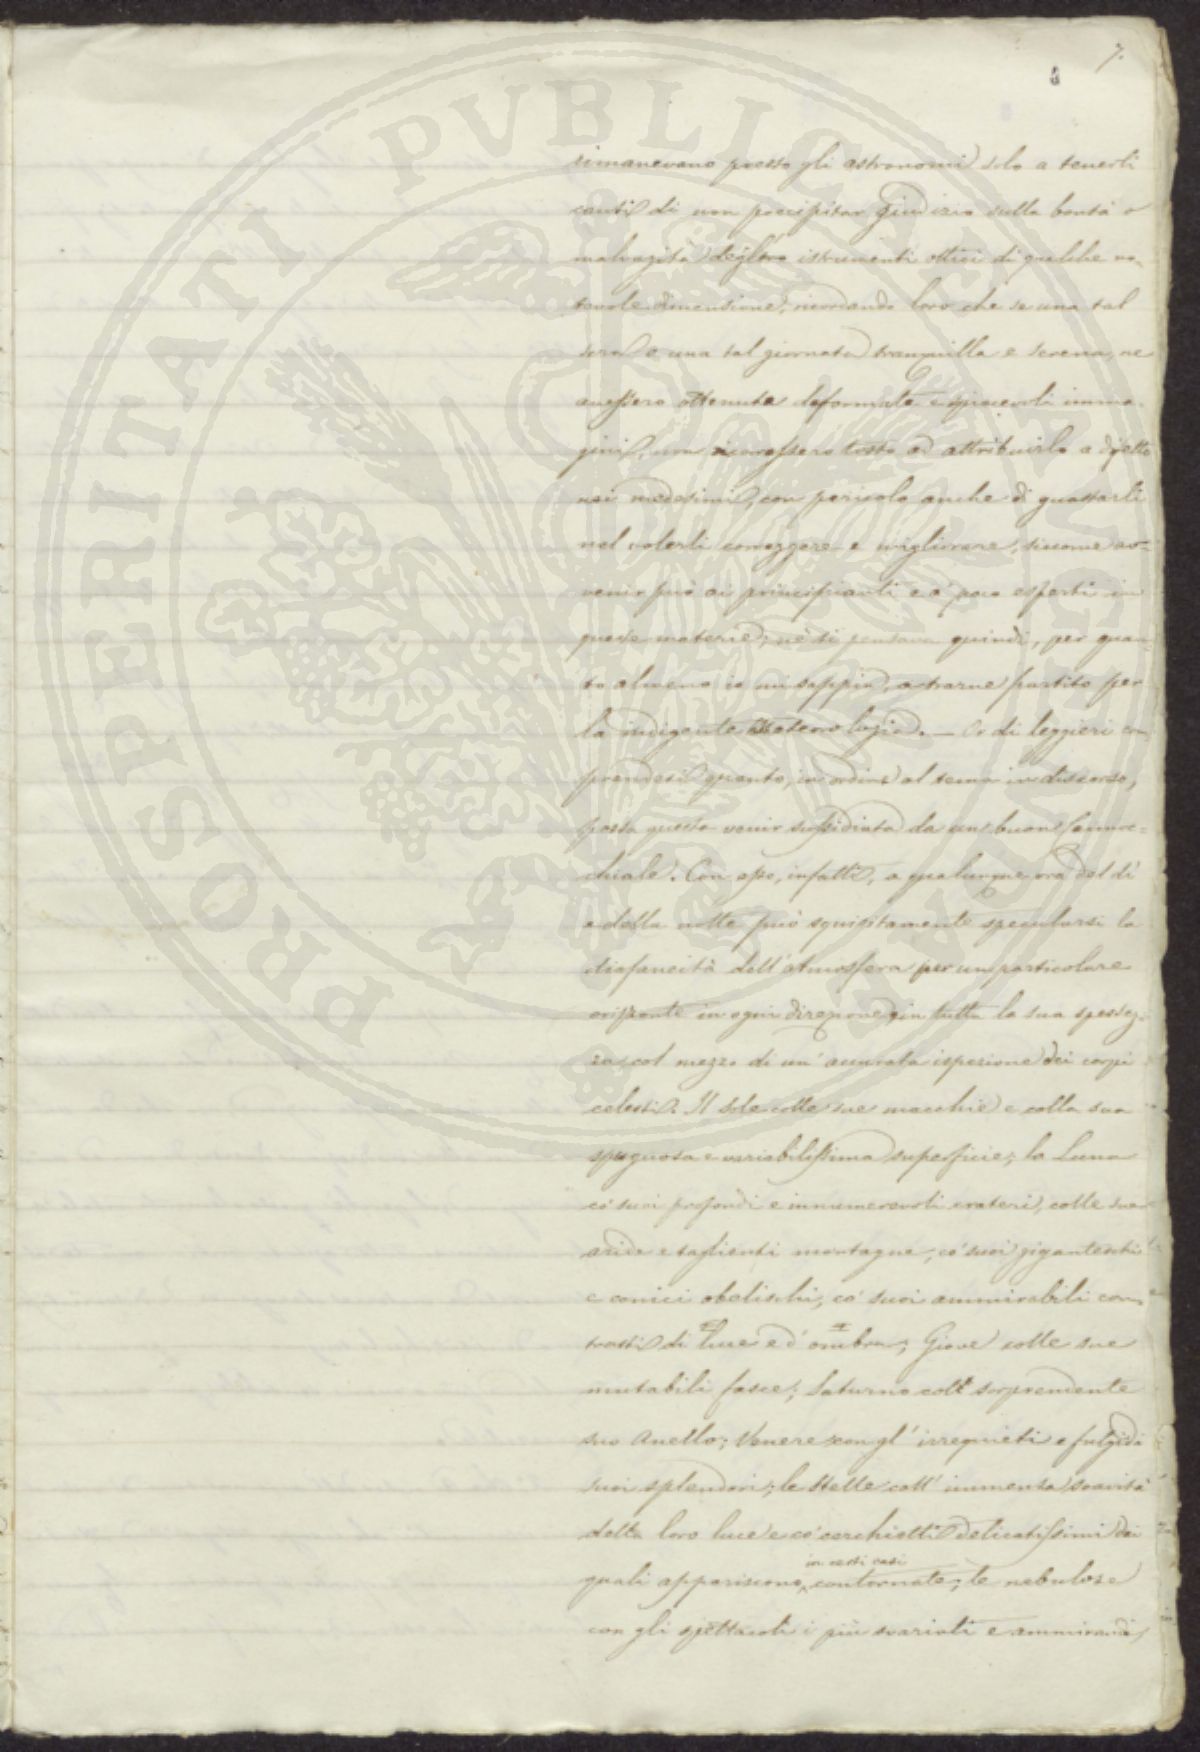 7.
rimanevano presso gli astronomi solo a tenerli
cauti di non precipitar giudizio sulla bontà o
malvagità degl'loro istrumenti ottici di qualche no-
tevole dimensione, ricordando loro che se una tal
sera o una tal giornata tranquilla e serena, ne
avessero ottenute deformate e spiacevoli imma-
gini, non ricorressero tosto ad attribuirlo a difetto
nei medesimi, con pericolo anche di guastarli
nel volerli correggere e migliorare, siccome av-
venir può ai principianti e a' poco esperti in
queste materie; nè si pensava quindi, per quan-
to almeno io mi sappia, a trarne partito per
la indigente Meteorologia. — Or di leggieri com-
prendesi quanto, in ordine al tema in discorso,
possa questa venir sussidiata da un buon Cannoc-
chiale. Con esso, infatti, a qualunque ora del dì
e della notte può squisitamente specularsi la
diafaneità dell'atmosfera per un particolare
orizzonte in ogni direzione, in tutta la sua spessez-
za, col mezzo di un'accurata ispezione dei corpi
celesti. Il Sole colle sue macchie e colla sua
spugnosa e variabilissima superficie; la Luna
co' suoi profondi e innumerevoli crateri, colle sue
aride e taglienti montagne, co' suoi giganteschi
e conici obelischi, co' suoi ammirabili con-
trasti di luce e d'ombra; Giove colle sue
mutabili fasce; Saturno coll sorprendente
suo Anello; Venere con gl'irrequieti e fulgidi
suoi splendori; le Stelle coll'immensa soavità
della loro luce e co' cerchietti delicatissimi dei
in certi casi
quali appariscono contornate; le nebulose
con gli spettacoli i più svariati e ammirandi,
PROSPERITATI PVBLICAE AVGENDAE